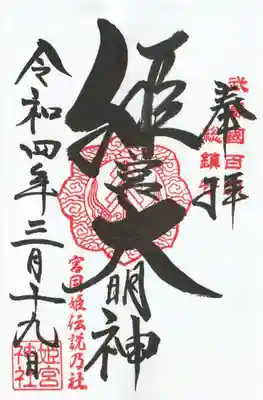 奉拝
武蔵國百間
総鎮守
姫宮大明神
宮目姫伝説乃社
令和四年三月十九日
姫宮神社